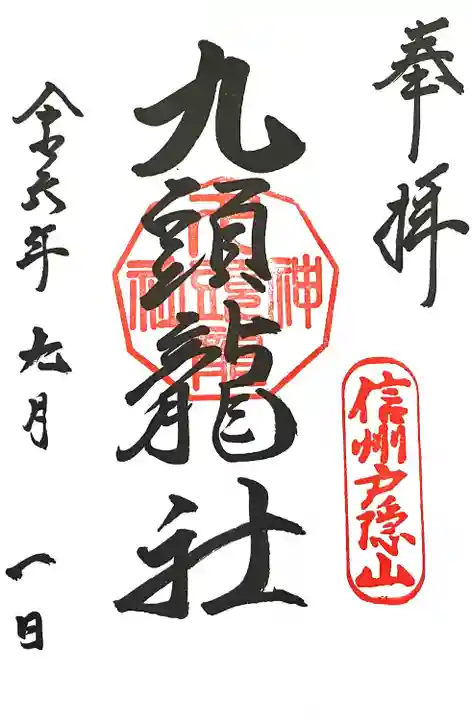 奉拝
信州戸隠山
九頭龍社
令和六年 九月 一日